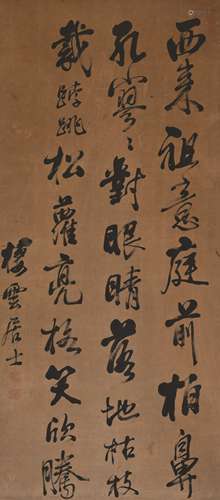 西来祖意庭前柏鼻
孔寥寥對眼睛落地枯枝
載跨跳松蘿亮格笑欣騰
棲雲居士